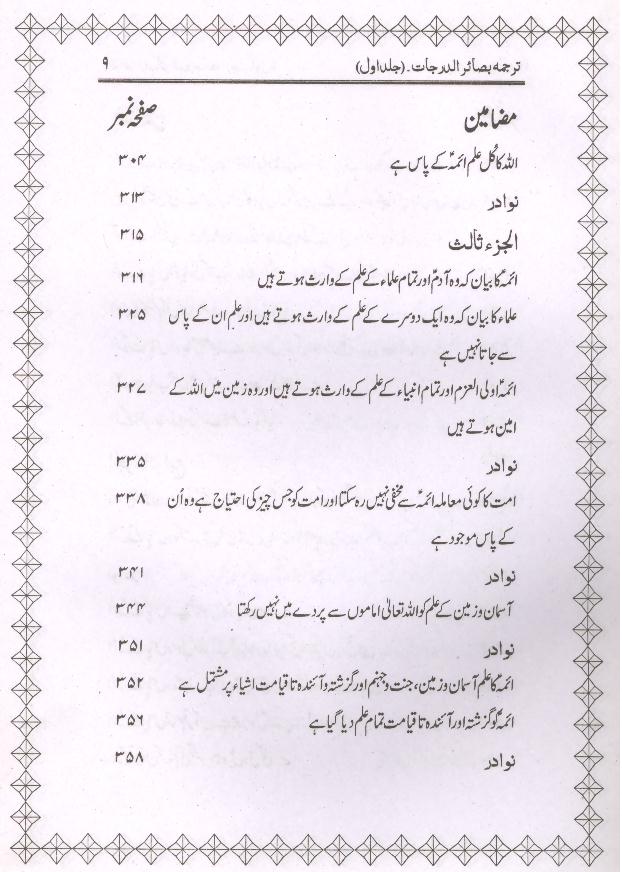 ترجمہ بصائر الدرجات۔ (جلد اول) ۹
مضامین صفحہ نمبر
اللہ کا کُل علم ائمہؑ کے پاس ہے ۳۰۴
نوادر ۳۱۳
الجزء ثالث ۳۱۵
ائمہؑ کا بیان کہ وہ آدمؑ اور تمام علماء کے علم کے وارث ہوتے ہیں ۳۱۶
علماء کا بیان کہ وہ ایک دوسرے کے علم کے وارث ہوتے ہیں اور علم ان کے پاس ۳۲۵
سے جاتا نہیں ہے
ائمہؑ اولی العزم اور تمام انبیاء کے علم کے وارث ہوتے ہیں اور وہ زمین میں اللہ کے ۳۲۷
امین ہوتے ہیں
نوادر ۳۳۵
امت کا کوئی معاملہ ائمہؑ سے مخفی نہیں رہ سکتا اور امت کو جس چیز کی احتیاج ہے وہ اُن ۳۳۸
کے پاس موجود ہے
نوادر ۳۴۱
آسمان و زمین کے علم کو اللہ تعالیٰ اماموں سے پردے میں نہیں رکھتا ۳۴۴
نوادر ۳۵۱
ائمہؑ کا علم آسمان و زمین، جنت و جہنم اور گزشتہ و آئندہ تا قیامت اشیاء پر مشتمل ہے ۳۵۲
ائمہؑ کو گزشتہ اور آئندہ تا قیامت تمام علم دیا گیا ہے ۳۵۶
نوادر ۳۵۸